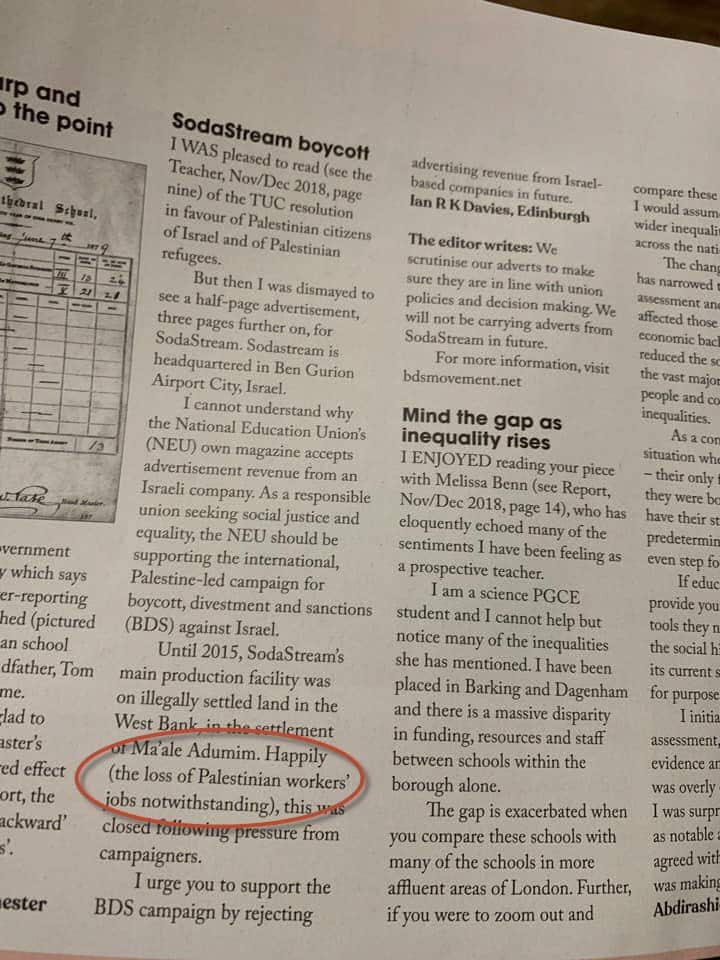 arp and
o the point
thedral School,
June 7th
III 12 24
V 21 21
13
Head Master.
vernment
y which says
er-reporting
hed (pictured
an school
dfather, Tom
me.
glad to
aster's
ed effect
ort, the
ackward'
s'.
ester
SodaStream boycott
I WAS pleased to read (see the
Teacher, Nov/Dec 2018, page
nine) of the TUC resolution
in favour of Palestinian citizens
of Israel and of Palestinian
refugees.
But then I was dismayed to
see a half-page advertisement,
three pages further on, for
SodaStream. Sodastream is
headquartered in Ben Gurion
Airport City, Israel.
I cannot understand why
the National Education Union's
(NEU) own magazine accepts
advertisement revenue from an
Israeli company. As a responsible
union seeking social justice and
equality, the NEU should be
supporting the international,
Palestine-led campaign for
boycott, divestment and sanctions
(BDS) against Israel.
Until 2015, SodaStream's
main production facility was
on illegally settled land in the
West Bank, in the settlement
of Ma'ale Adumim. Happily
(the loss of Palestinian workers'
jobs notwithstanding), this was
closed following pressure from
campaigners.
I urge you to support the
BDS campaign by rejecting
advertising revenue from Israel-
based companies in future.
Ian R K Davies, Edinburgh
The editor writes: We
scrutinise our adverts to make
sure they are in line with union
policies and decision making. We
will not be carrying adverts from
SodaStream in future.
For more information, visit
bdsmovement.net
Mind the gap as
inequality rises
I ENJOYED reading your piece
with Melissa Benn (see Report,
Nov/Dec 2018, page 14), who has
eloquently echoed many of the
sentiments I have been feeling as
a prospective teacher.
I am a science PGCE
student and I cannot help but
notice many of the inequalities
she has mentioned. I have been
placed in Barking and Dagenham
and there is a massive disparity
in funding, resources and staff
between schools within the
borough alone.
The gap is exacerbated when
you compare these schools with
many of the schools in more
affluent areas of London. Further,
if you were to zoom out and
compare these
I would assum
wider inequali
across the nati
The chang
has narrowed t
assessment and
affected those
economic back
reduced the so
the vast major
people and co
inequalities.
As a con
situation whe
– their only f
they were bo
have their st
predetermin
even step fo
If educ
provide you
tools they n
the social h
its current s
for purpose
I initia
assessment,
evidence an
was overly
I was surpr
as notable a
agreed with
was making
Abdirashi